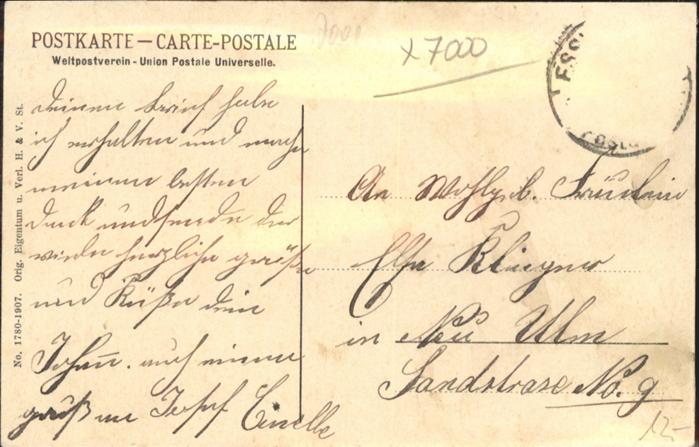 POSTKARTE — CARTE-POSTALE
Weltpostverein - Union Postale Universelle.
7000
x 7000
ESSL
No. 1780-1907. Orig. Eigentum u. Verl. H. & V. St.
deinen brief habe
ich erhalten und mache
meinen besten
dank und sende dir
viele herzliche grüße
und Küße dein
Johan. auch einen
gruß an Josef
An Wohlgeb. Fräulein
Elsa Klingner
in Neu Ulm
Sandstrase No. 9
12-